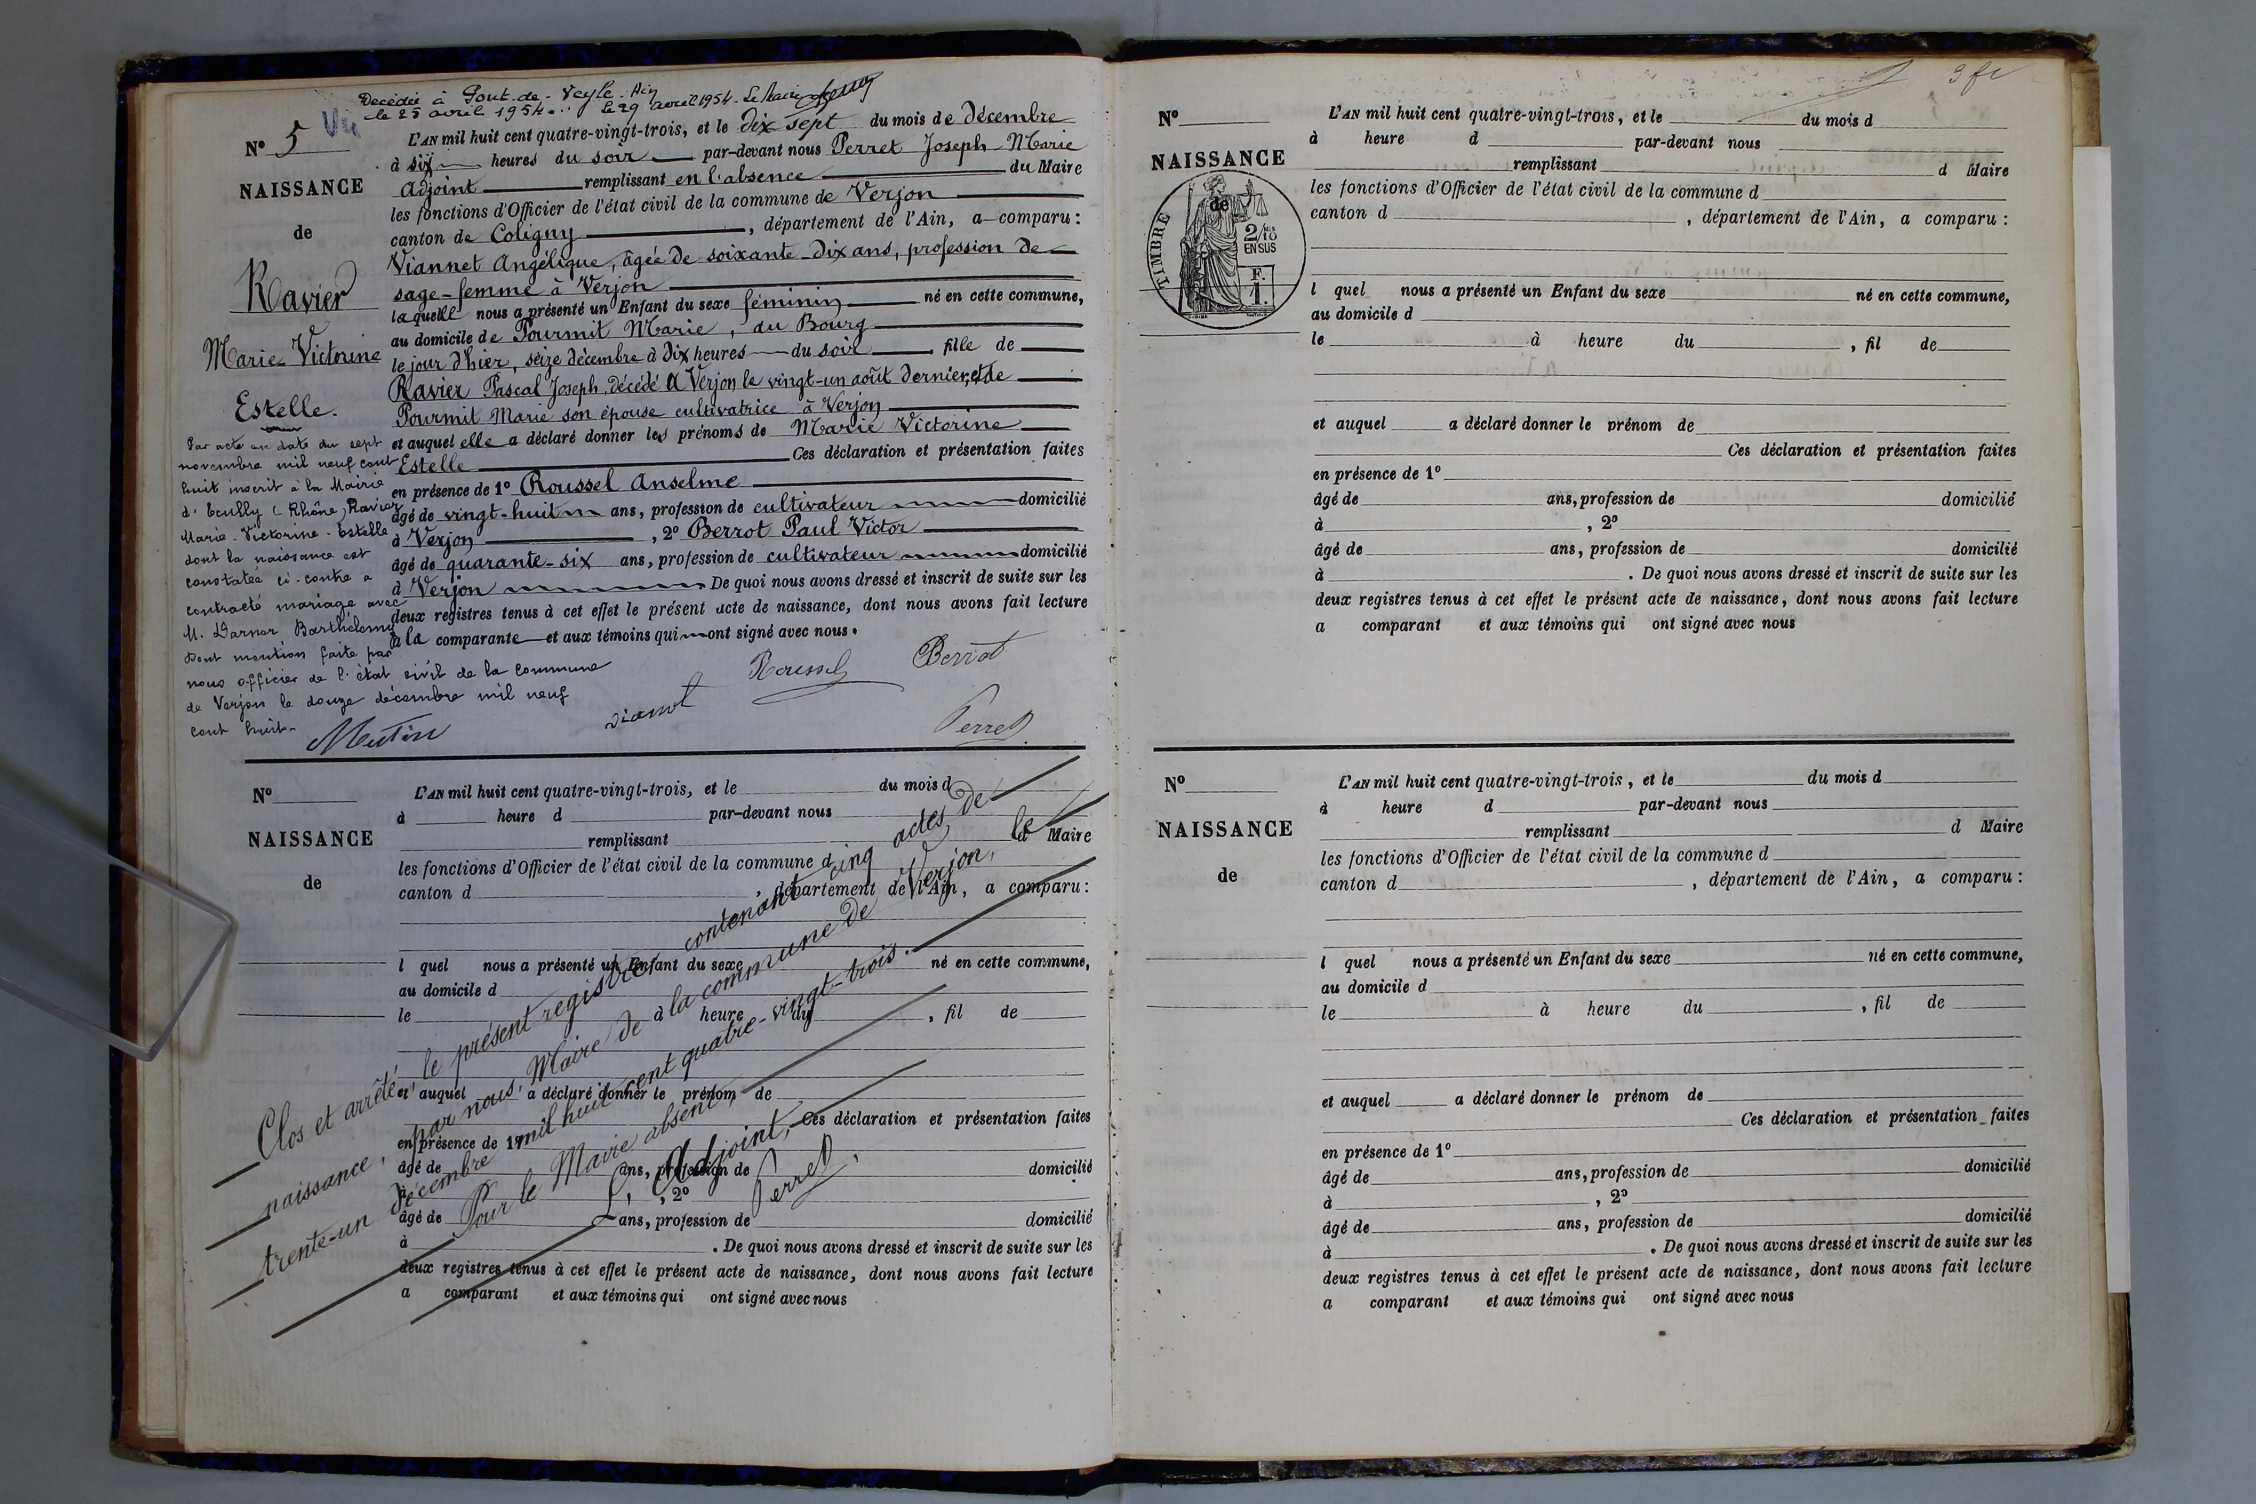 Décédée à Pont-de-Veyle-Ain
le 25 avril 1954. le 29 avril 1954. Le Maire
Nº 5 Vu
NAISSANCE
de
Ravier
Marie Victorine
Estelle.
Par acte en date du sept
novembre mil neuf cent
huit inscrit à la Mairie
d'Ecully (Rhône) Ravier
Marie-Victorine-Estelle
dont la naissance est
constatée ci-contre a
contracté mariage avec
M. Darnar Barthélemy
Dont mention faite par
nous officier de l'état civil de la commune
de Verjon le douze décembre mil neuf
cent huit.
Mutin
L'AN mil huit cent quatre-vingt-trois, et le dix sept du mois de décembre
à six heures du soir par-devant nous Perret Joseph Marie
Adjoint remplissant en l'absence du Maire
les fonctions d'Officier de l'état civil de la commune de Verjon
canton de Coligny, département de l'Ain, a comparu :
Viannet Angélique, âgée de soixante-dix ans, profession de
sage-femme à Verjon
laquelle nous a présenté un Enfant du sexe féminin né en cette commune,
au domicile de Pourmit Marie, au Bourg
le jour d'hier, seize décembre à dix heures du soir, fille de
Ravier Pascal Joseph, décédé à Verjon le vingt-un août dernier, et de
Pourmit Marie son épouse cultivatrice à Verjon
et auquel elle a déclaré donner les prénoms de Marie Victorine
Estelle Ces déclaration et présentation faites
en présence de 1º Roussel Anselme
âgé de vingt-huit ans, profession de cultivateur domicilié
à Verjon, 2º Berrot Paul Victor
âgé de quarante-six ans, profession de cultivateur domicilié
à Verjon. De quoi nous avons dressé et inscrit de suite sur les
deux registres tenus à cet effet le présent acte de naissance, dont nous avons fait lecture
à la comparante et aux témoins qui ont signé avec nous.
Roussel Berrot
vianet Perret
Nº
NAISSANCE
de
L'AN mil huit cent quatre-vingt-trois, et le du mois d
à heure d par-devant nous
remplissant d Maire
les fonctions d'Officier de l'état civil de la commune d
canton d , département de l'Ain, a comparu :
l quel nous a présenté un Enfant du sexe né en cette commune,
au domicile d
le à heure du , fil de
et auquel a déclaré donner le prénom de
Ces déclaration et présentation faites
en présence de 1º
âgé de ans, profession de domicilié
à , 2º
âgé de ans, profession de domicilié
à . De quoi nous avons dressé et inscrit de suite sur les
deux registres tenus à cet effet le présent acte de naissance, dont nous avons fait lecture
a comparant et aux témoins qui ont signé avec nous
Clos et arrêté le présent registre contenant cinq actes de
naissance, par nous, Maire de la commune de Verjon, le
trente-un décembre mil huit cent quatre-vingt-trois.
Pour le Maire absent,
L'Adjoint,
Perret
3 fe
Nº
NAISSANCE
de
TIMBRE
2/10
EN SUS
F.
1.
L'AN mil huit cent quatre-vingt-trois, et le du mois d
à heure d par-devant nous
remplissant d Maire
les fonctions d'Officier de l'état civil de la commune d
canton d , département de l'Ain, a comparu :
l quel nous a présenté un Enfant du sexe né en cette commune,
au domicile d
le à heure du , fil de
et auquel a déclaré donner le prénom de
Ces déclaration et présentation faites
en présence de 1º
âgé de ans, profession de domicilié
à , 2º
âgé de ans, profession de domicilié
à . De quoi nous avons dressé et inscrit de suite sur les
deux registres tenus à cet effet le présent acte de naissance, dont nous avons fait lecture
a comparant et aux témoins qui ont signé avec nous
Nº
NAISSANCE
de
L'AN mil huit cent quatre-vingt-trois, et le du mois d
à heure d par-devant nous
remplissant d Maire
les fonctions d'Officier de l'état civil de la commune d
canton d , département de l'Ain, a comparu :
l quel nous a présenté un Enfant du sexe né en cette commune,
au domicile d
le à heure du , fil de
et auquel a déclaré donner le prénom de
Ces déclaration et présentation faites
en présence de 1º
âgé de ans, profession de domicilié
à , 2º
âgé de ans, profession de domicilié
à . De quoi nous avons dressé et inscrit de suite sur les
deux registres tenus à cet effet le présent acte de naissance, dont nous avons fait lecture
a comparant et aux témoins qui ont signé avec nous